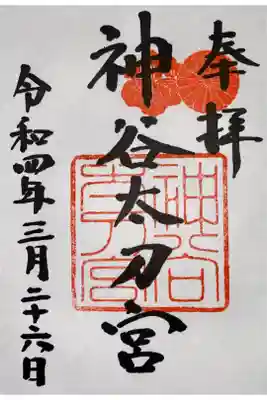 奉拝
神谷太刀宮
令和四年三月二十六日
神谷太刀宮